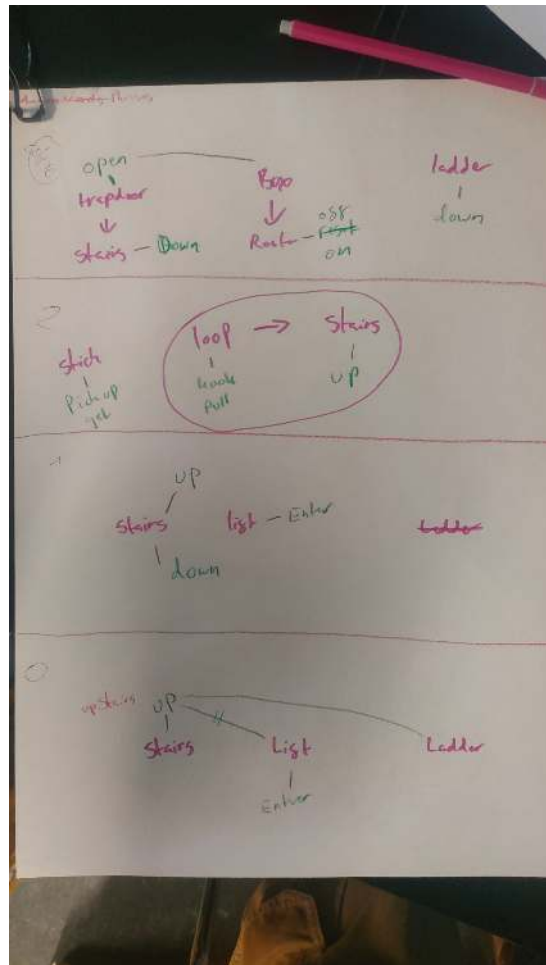 open
trapdoor
Stairs - Down
Box
off
reset
on
ladder
down
2
Stick
Pickup
get
loop → Stairs
hook
Pull
UP
UP
Stairs
down
list - Enter
Ladder
0
upstairs UP
Stairs
List
Ladder
Enter